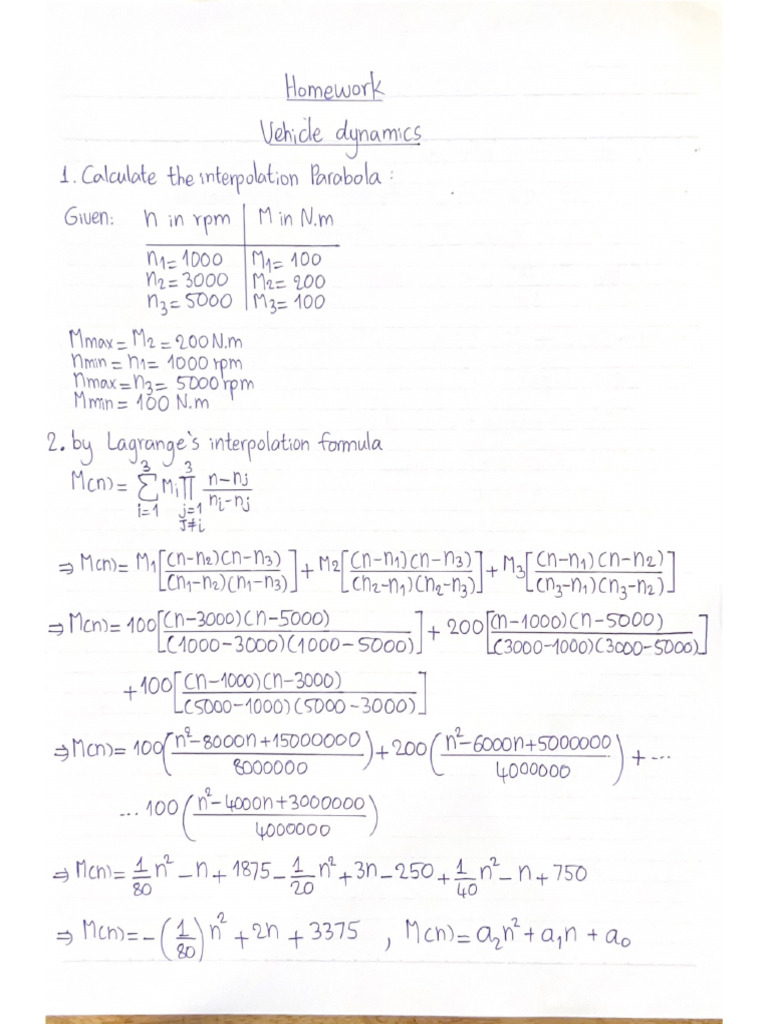 Homework
Vehicle dynamics
1. Calculate the interpolation Parabola :
Given: n in rpm | M in N.m
n1= 1000 | M1= 100
n2= 3000 | M2= 200
n3= 5000 | M3= 100
Mmax= M2 = 200 N.m
nmin = n1= 1000 rpm
nmax=n3= 5000 rpm
Mmin= 100 N.m
2. by Lagrange's interpolation formula
M(n)= ∑(i=1 → 3) Mi ∏(j=1, J≠i → 3) (n-nj)/(ni-nj)
⇒ M(n)= M1[(n-n2)(n-n3)/(n1-n2)(n1-n3)] + M2[(n-n1)(n-n3)/(n2-n1)(n2-n3)] + M3[(n-n1)(n-n2)/(n3-n1)(n3-n2)]
⇒ M(n)= 100[(n-3000)(n-5000)/(1000-3000)(1000-5000)] + 200[(n-1000)(n-5000)/(3000-1000)(3000-5000)]
+100[(n-1000)(n-3000)/(5000-1000)(5000-3000)]
⇒ M(n)= 100(n²-8000n+15000000/8000000) + 200(n²-6000n+5000000/4000000) + ...
... 100(n²-4000n+3000000/4000000)
⇒ M(n)= 1/80 n² - n + 1875 - 1/20 n² + 3n - 250 + 1/40 n² - n + 750
⇒ M(n)= -(1/80)n² + 2n + 3375 , M(n)= a2n² + a1n + a0